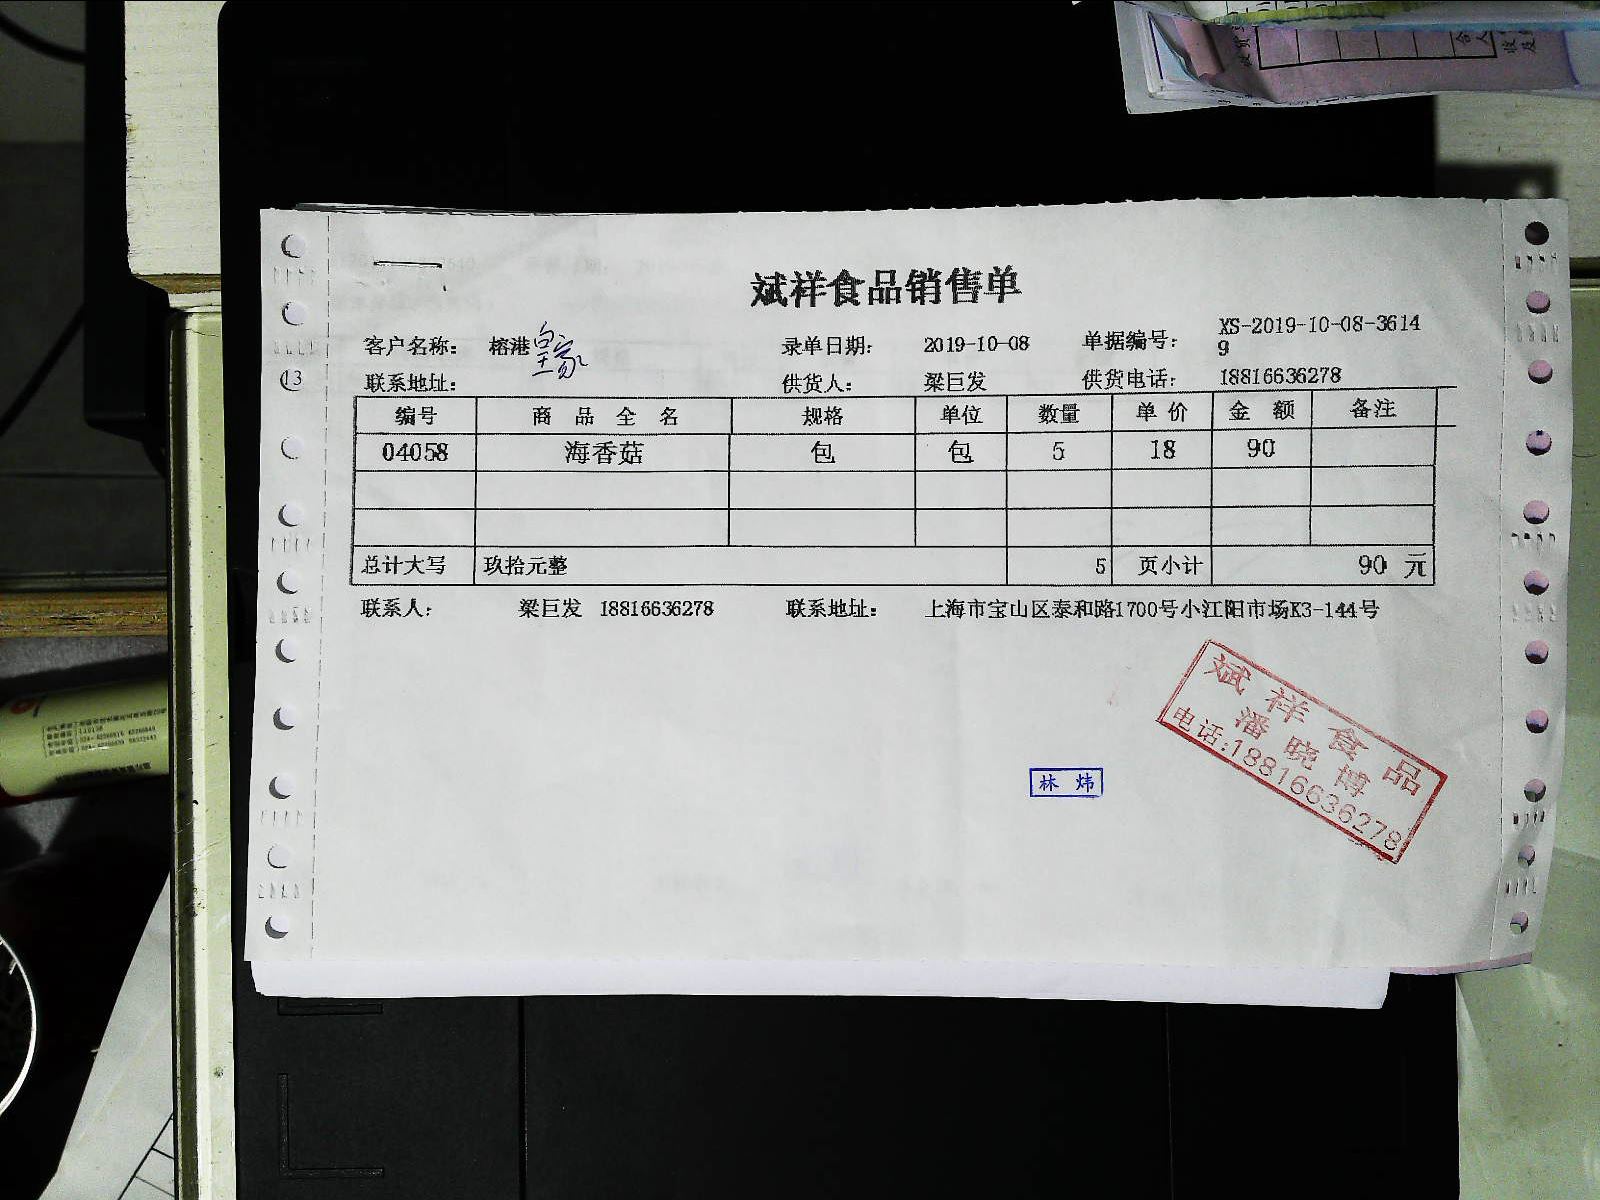 斌祥食品销售单
客户名称： 榕港皇家 录单日期： 2019-10-08 单据编号： XS-2019-10-08-3614
9
联系地址： 供货人： 梁巨发 供货电话： 18816636278
编号 商品全名 规格 单位 数量 单价 金额 备注
04058 海香菇 包 包 5 18 90
总计大写 玖拾元整 5 页小计 90 元
联系人： 梁巨发 18816636278 联系地址： 上海市宝山区泰和路1700号小江阳市场K3-144号
斌祥食品
潘晓博
电话:18816636278
林炜
13